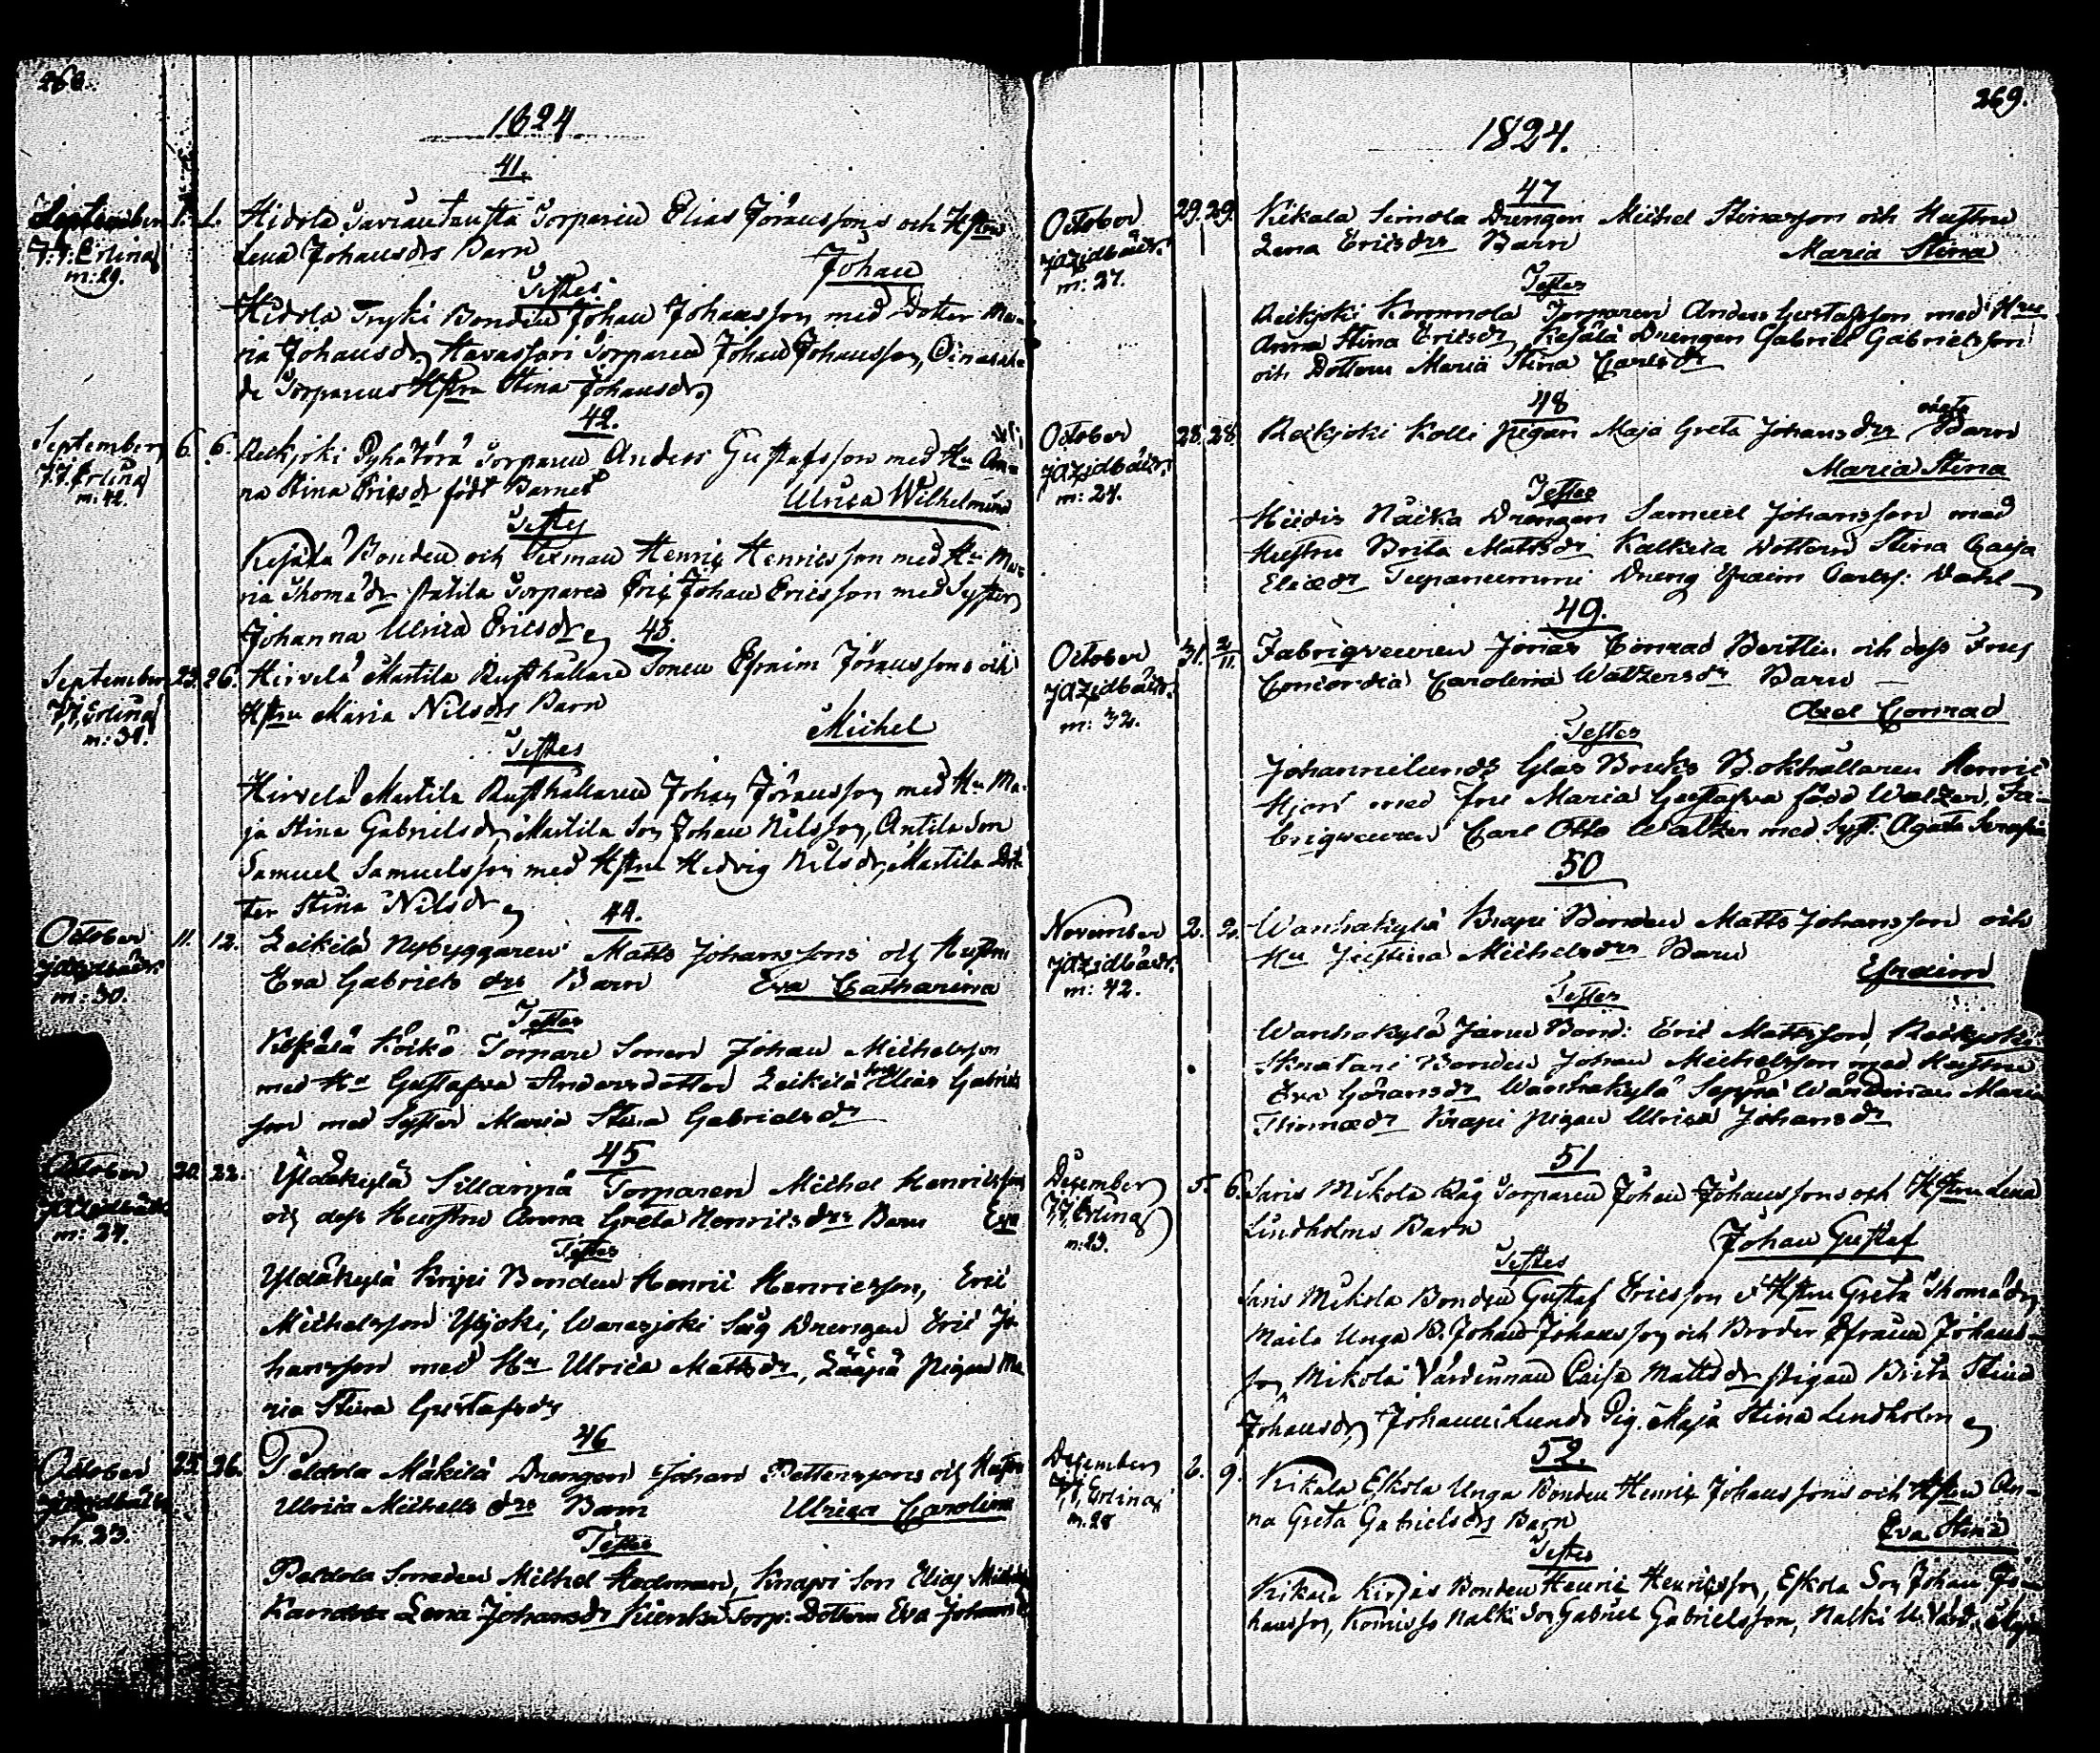 268.
1824
41.
September 1. 1. Hidola Torparen Elias Jöranssons och Hstrus
J. J. Erlina Lena Johansdrs Barn Johan
m: 29.
Testes
Hidola Tryki Bonden Johan Johansson med Dotter Ma-
ria Johansdr, Havassari Torparen Johan Johansson,
de Torparens Hstru Stina Johansdr
42.
September 6. 6. Reikjoki Pyhätörä Torparen Anders Gustafsson med Hu An-
J. J. Erlina na Stina Ericsdr födt Barnet Ulrica Wilhelmina
m: 42.
Testes
Kesälä Bonden och Henric Henricsson med Hu Ma-
ria Thomædr Torparen Eric Johan Ericsson med Syster
Johanna Ulrica Ericsdr
43.
September 23. 26. Hirvelä Martila Rusthållare Sonen Efraim Jöranssons och
J. J. Erlina Hstru Maria Nilsdrs Barn Michel
m: 31.
Testes
Hirvelä Martila Rusthållaren Johan Jöransson med Hu Ma-
ja Stina Gabrielsdr, Martila Son Johan Nilsson, Antila Son
Samuel Samuelsson med Hstru Hedvig Nilsdr, Martila Dot-
ter Stina Nilsdr
44.
October 11. 12. Leikilä Nybyggaren Matts Johanssons och Hustru
Eva Gabriels drs Barn Eva Catharina
m: 30.
Testes
Köikö Torpare Sonen Johan Michelsson
med Hu Gustafva Andersdotter Leikilä Son Elias Gabriels
son med Syster Maria Stina Gabrielsdr
45
October 20. 22. Yläkylä Sillanpä Torparen Michel Henricssons
och dess Hustru Anna Greta Henricsdrs Barn Eva
m: 27.
Testes
Yläkylä Kripi Bonden Henric Henricsson, Eric
Michelsson Ylijoki, Waresjoki Drengen Eric Jo
hansson med Hu Ulrica Mattsdr, Lääpä Pigan Ma
ria Stina Gustafsdr
46
October 25. 26. Peldola Mäkilä Drengen Johan Pettersons och Hustru
Ulrica Michells drs Barn Ulrica Carolina
m. 23.
Testes
Peldola Smeden Michel Hedman, Knapi Son Elias
Lena Johansdr Torp: Dottern Eva Johansd
269.
1824.
47
October 29. 29. Kikala Simola Drengen Michel Stinasson och Hustru
Lena Ericsdrs Barn Maria Stina
m: 27.
Testes
Reikjoki Torparen Anders Gustafsson med Hu
Anna Stina Ericsdr, Kesälä Drengen Gabriel Gabrielsson
och Dottern Maria Stina Carlsdr
48
October 28. 28. Reikjoki Kolli Pigan Maja Greta Johansdrs oägta Barn
Maria Stina
m: 24.
Testes
Hiidis Näika Drengen Samuel Johansson med
Hustru Brita Mattsdr Kalkila Dottern Stina Caisa
Eliædr Dreng Efraim Carlss: Dahl
49.
October 31. 2/11. Fabriqveuren Jonas Conrad Bertlin och dess Fru
Concordia Carolina Waltzersdr Barn
m: 32. Axel Conrad
Testes
Johannislunds Glas Bruks Bokhållaren Henric
Hjort med Fru Maria Gustafva född Waltzer, Fa-
briqveuren Carl Otto Waltzer med Syst: Agata Serafia
50
November 2. 2. Wanhakylä Krapi Bonden Matts Johansson och
Hu Justina Michelsdrs Barn Efraim
m: 42.
Testes
Wanhakylä Bond: Eric Mattsson, Reikjoki
Bonden Johan Michelsson med Hustru
Eva Göransdr Wanhakylä Seppä Wärdinnan Maria
Thomædr Krapi Pigan Ulrica Johansdr
51
December 5. 6. Saris Mikola Torparen Johan Johanssons och Hstru Lena
J. J. Erlina Lindholms Barn Johan Gustaf
m: 23.
Testes
Saris Mikola Bonden Gustaf Ericsson o Hstru Greta Thomædr,
Maila Unga B. Johan Johansson och Broder Efraim Johans-
son, Mikola Värdinnan Caisa Mattsdr Pigan Brita Stina
Johansdr, Johannislunds Pig. Maja Stina Lindholm
52.
December 2. 9. Kikala Eskola Unga Bonden Henric Johanssons och Hstru An-
J. J. Erlina na Greta Gabrielsdrs Barn Eva Stina
m. 28
Testes
Kikala Bonden Henric Henricsson, Eskola Son Johan Jo-
hansson, Komisso Nalki Son Gabriel Gabrielsson, Nalki